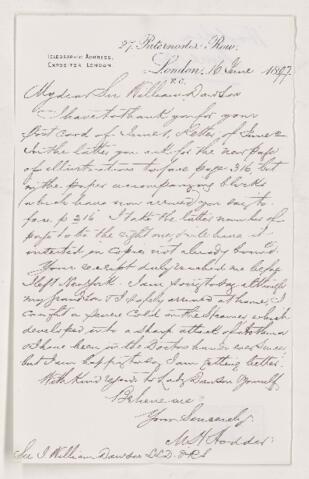 27, Paternoster Row,
TELEGRAPHIC ADDRESS,
EXPOSITER LONDON.
London, 16 June 1897.
E.C.
My dear Sir William Dawson
I have to thank you for your
post card of June 1, & letter of June 2
In the latter you ask for the new page
of illustrations to face page 316, but
in the paper accompanying blocks
which have now arrived you say to
face p 216. I take the latter number of
page to be the right one, & will have it
inserted in copies not already bound.
Your receipt duly reached me before
I left New York. I am sorry to say although
my Grandson & I safely arrived at home, I
caught a severe Cold in the Steamer which
developed into a sharp attack of Asthma
& I have been in the Doctors hands ever since
but I am happy to say I am getting better.
With Kind regards to Lady Dawson & yourself
Believe me
Yours Sincerely
M H Hodder
Sir J. William Dawson LLD. FRS